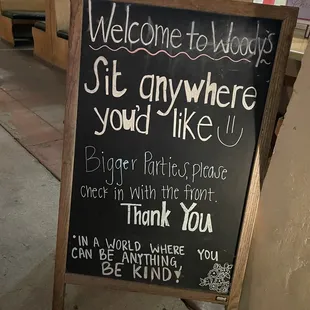 Welcome to Woody's
Sit anywhere
you'd like
Bigger Parties, please
check in with the front.
Thank You
*IN A WORLD WHERE YOU
CAN BE ANYTHING,
BE KIND!